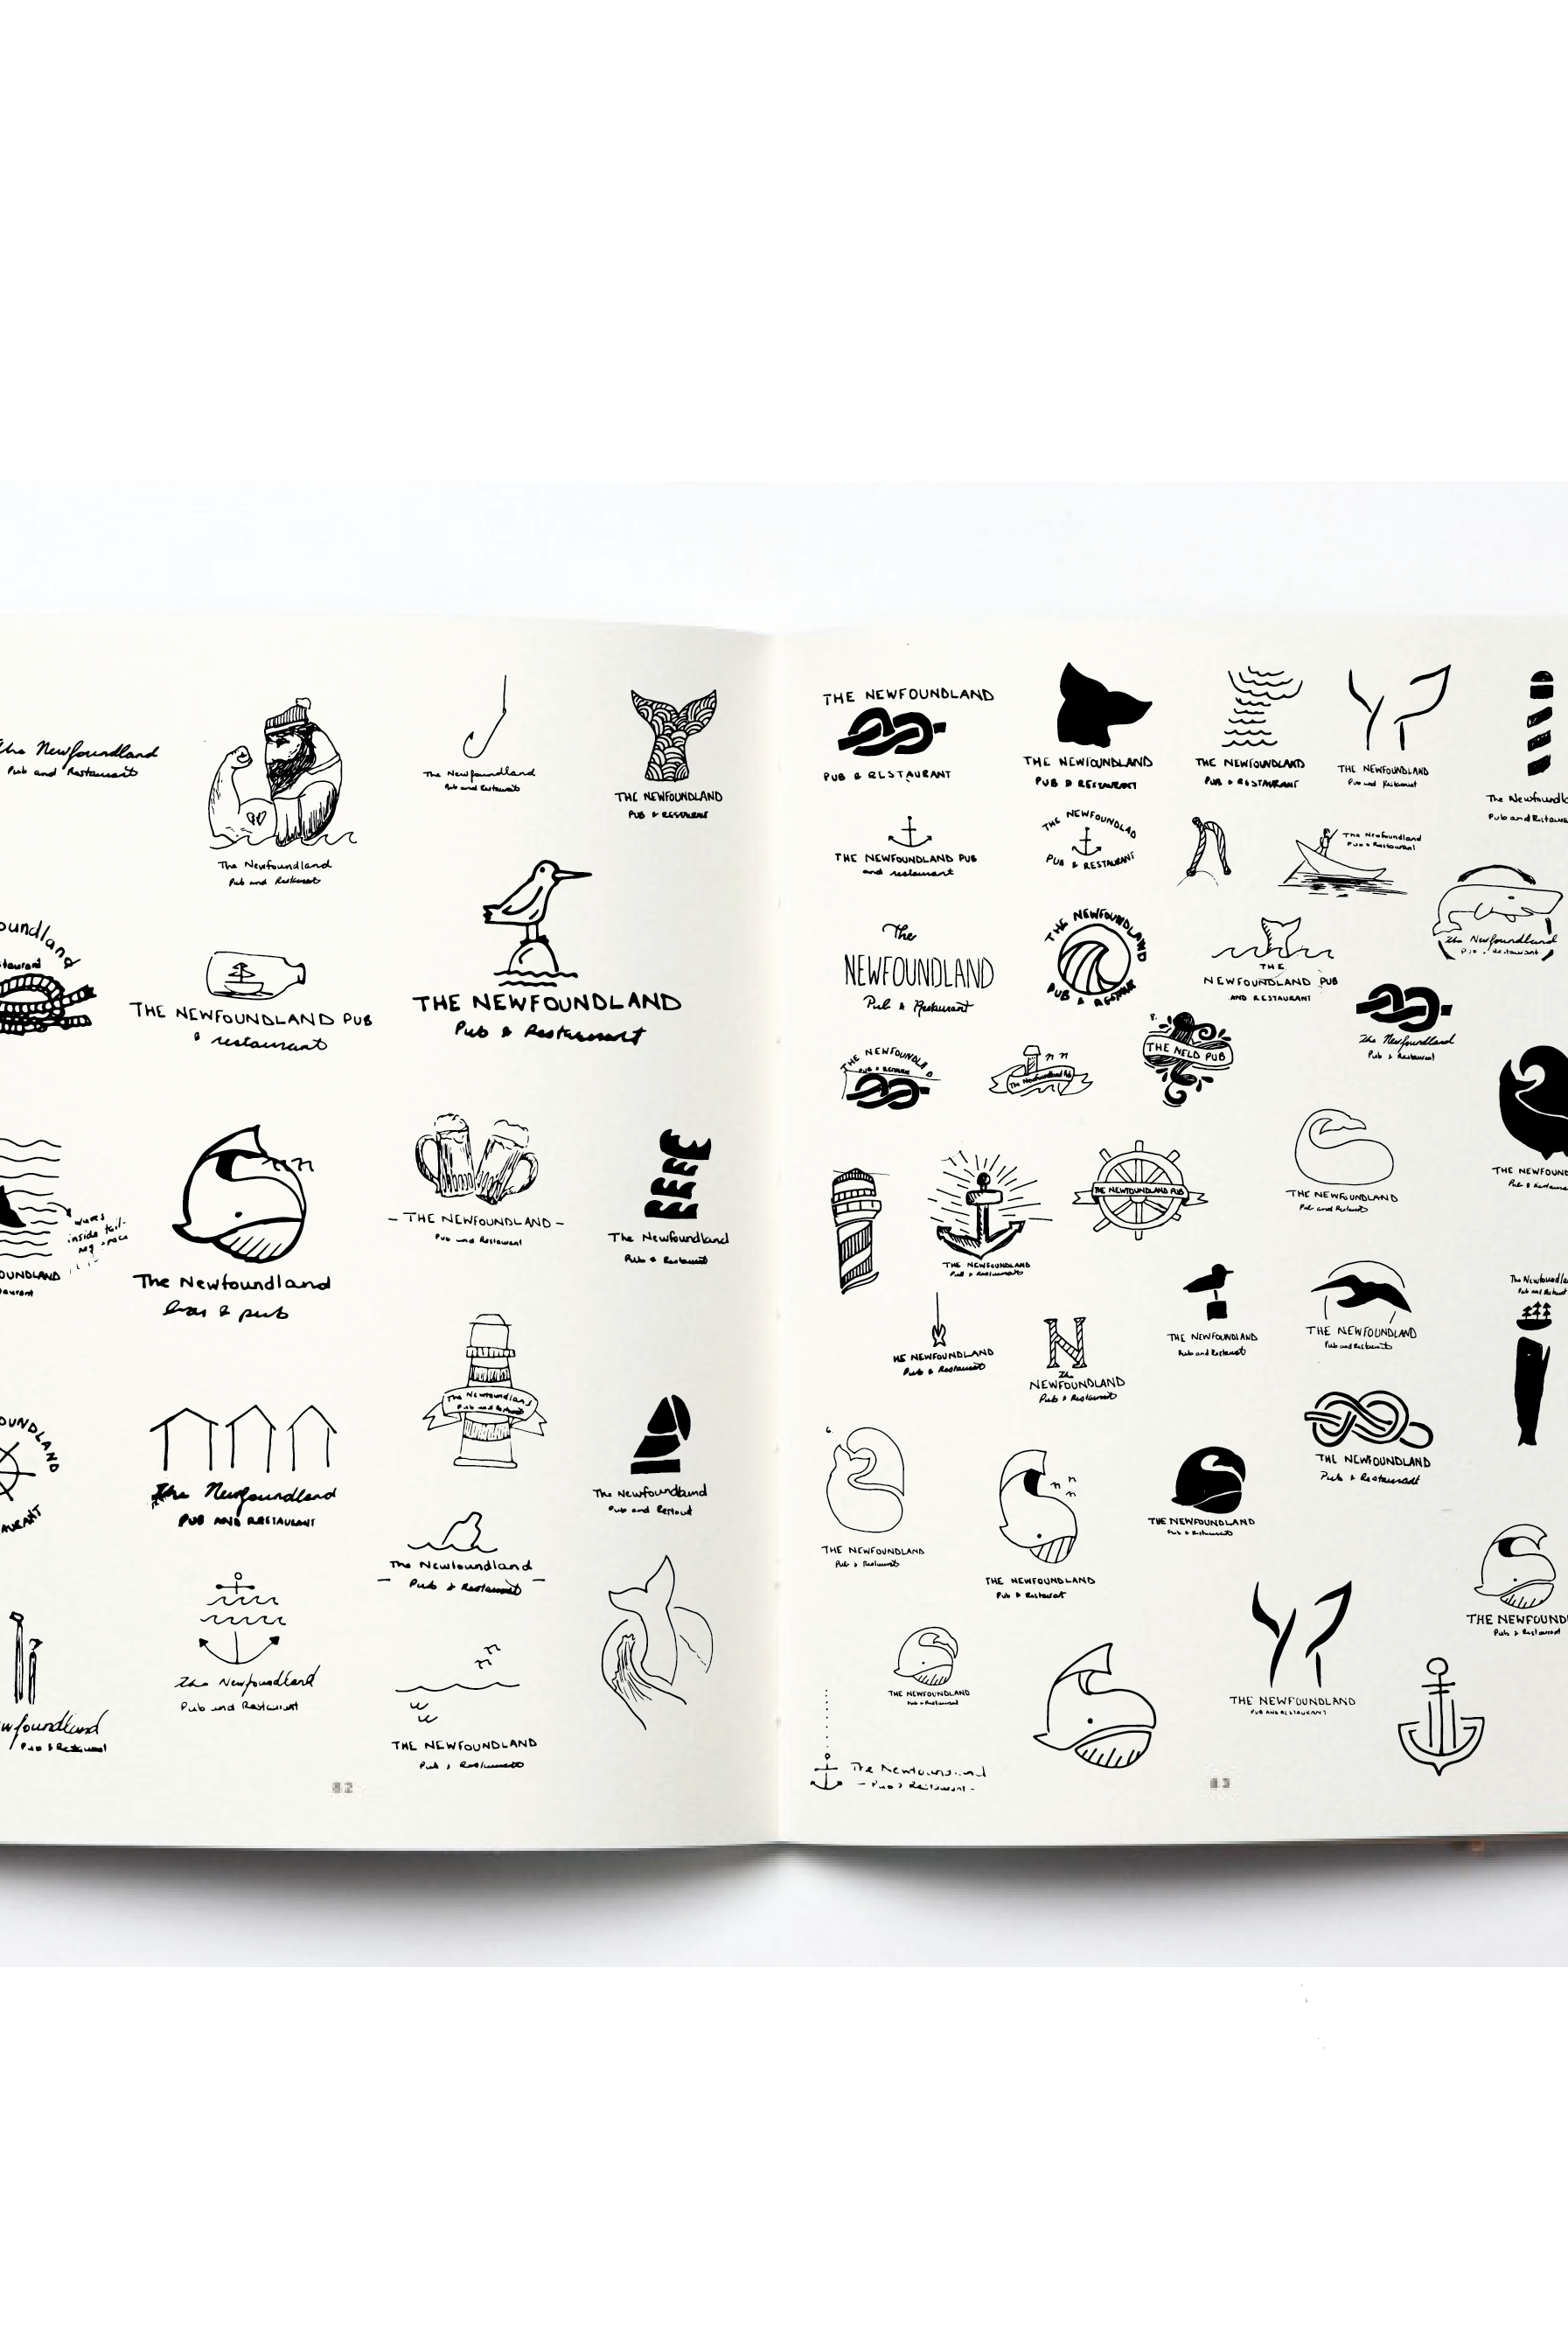 The Newfoundland
Pub and Restaurant
The Newfoundland
Pub and Restaurant
The Newfoundland
Pub and Restaurant
THE NEWFOUNDLAND
PUB & RESTAURANT
THE NEWFOUNDLAND PUB
& restaurant
THE NEWFOUNDLAND
Pub & Restaurant
waves
inside tail-
neg space
The Newfoundland
bar & pub
- THE NEWFOUNDLAND -
Pub and Restaurant
The Newfoundland
Pub & Restaurant
The Newfoundland
Pub and Restaurant
The Newfoundland
PUB AND RESTAURANT
The Newfoundland
Pub and Restaurant
The Newfoundland
- Pub & Restaurant -
The Newfoundland
Pub and Restaurant
THE NEWFOUNDLAND
Pub & Restaurant
Pub & Restaurant
82
THE NEWFOUNDLAND
PUB & RESTAURANT
THE NEWFOUNDLAND
PUB & RESTAURANT
THE NEWFOUNDLAND
PUB & RESTAURANT
THE NEWFOUNDLAND
Pub and Restaurant
THE NEWFOUNDLAND PUB
and restaurant
THE NEWFOUNDLAD
PUB & RESTAURANT
The Newfoundland
Pub & Restaurant
The Newfoundland
Pub & Restaurant
The
NEWFOUNDLAND
Pub & Restaurant
THE NEWFOUNDLAND
THE
NEWFOUNDLAND PUB
AND RESTAURANT
The Newfoundland
Pub & Restaurant
THE NEWFOUNDLAD
The Newfoundland Pub
THE NFLD PUB
THE NEWFOUNDLAND
Pub & Restaurant
THE NEWFOUNDLAND PUB
THE NEWFOUNDLAND
Pub and Restaurant
HE NEWFOUNDLAND
Pub & Restaurant
N
The
NEWFOUNDLAND
Pub & Restaurant
THE NEWFOUNDLAND
Pub and Restaurant
THE NEWFOUNDLAND
Pub and Restaurant
THE NEWFOUNDLAND
Pub & Restaurant
THE NEWFOUNDLAND
Pub & Restaurant
THE NEWFOUNDLAND
Pub & Restaurant
THE NEWFOUNDLAND
Pub & Restaurant
THE NEWFOUNDLAND
Pub & Restaurant
THE NEWFOUNDLAND
PUB AND RESTAURANT
The Newfoundland
- Pub & Restaurant -
83